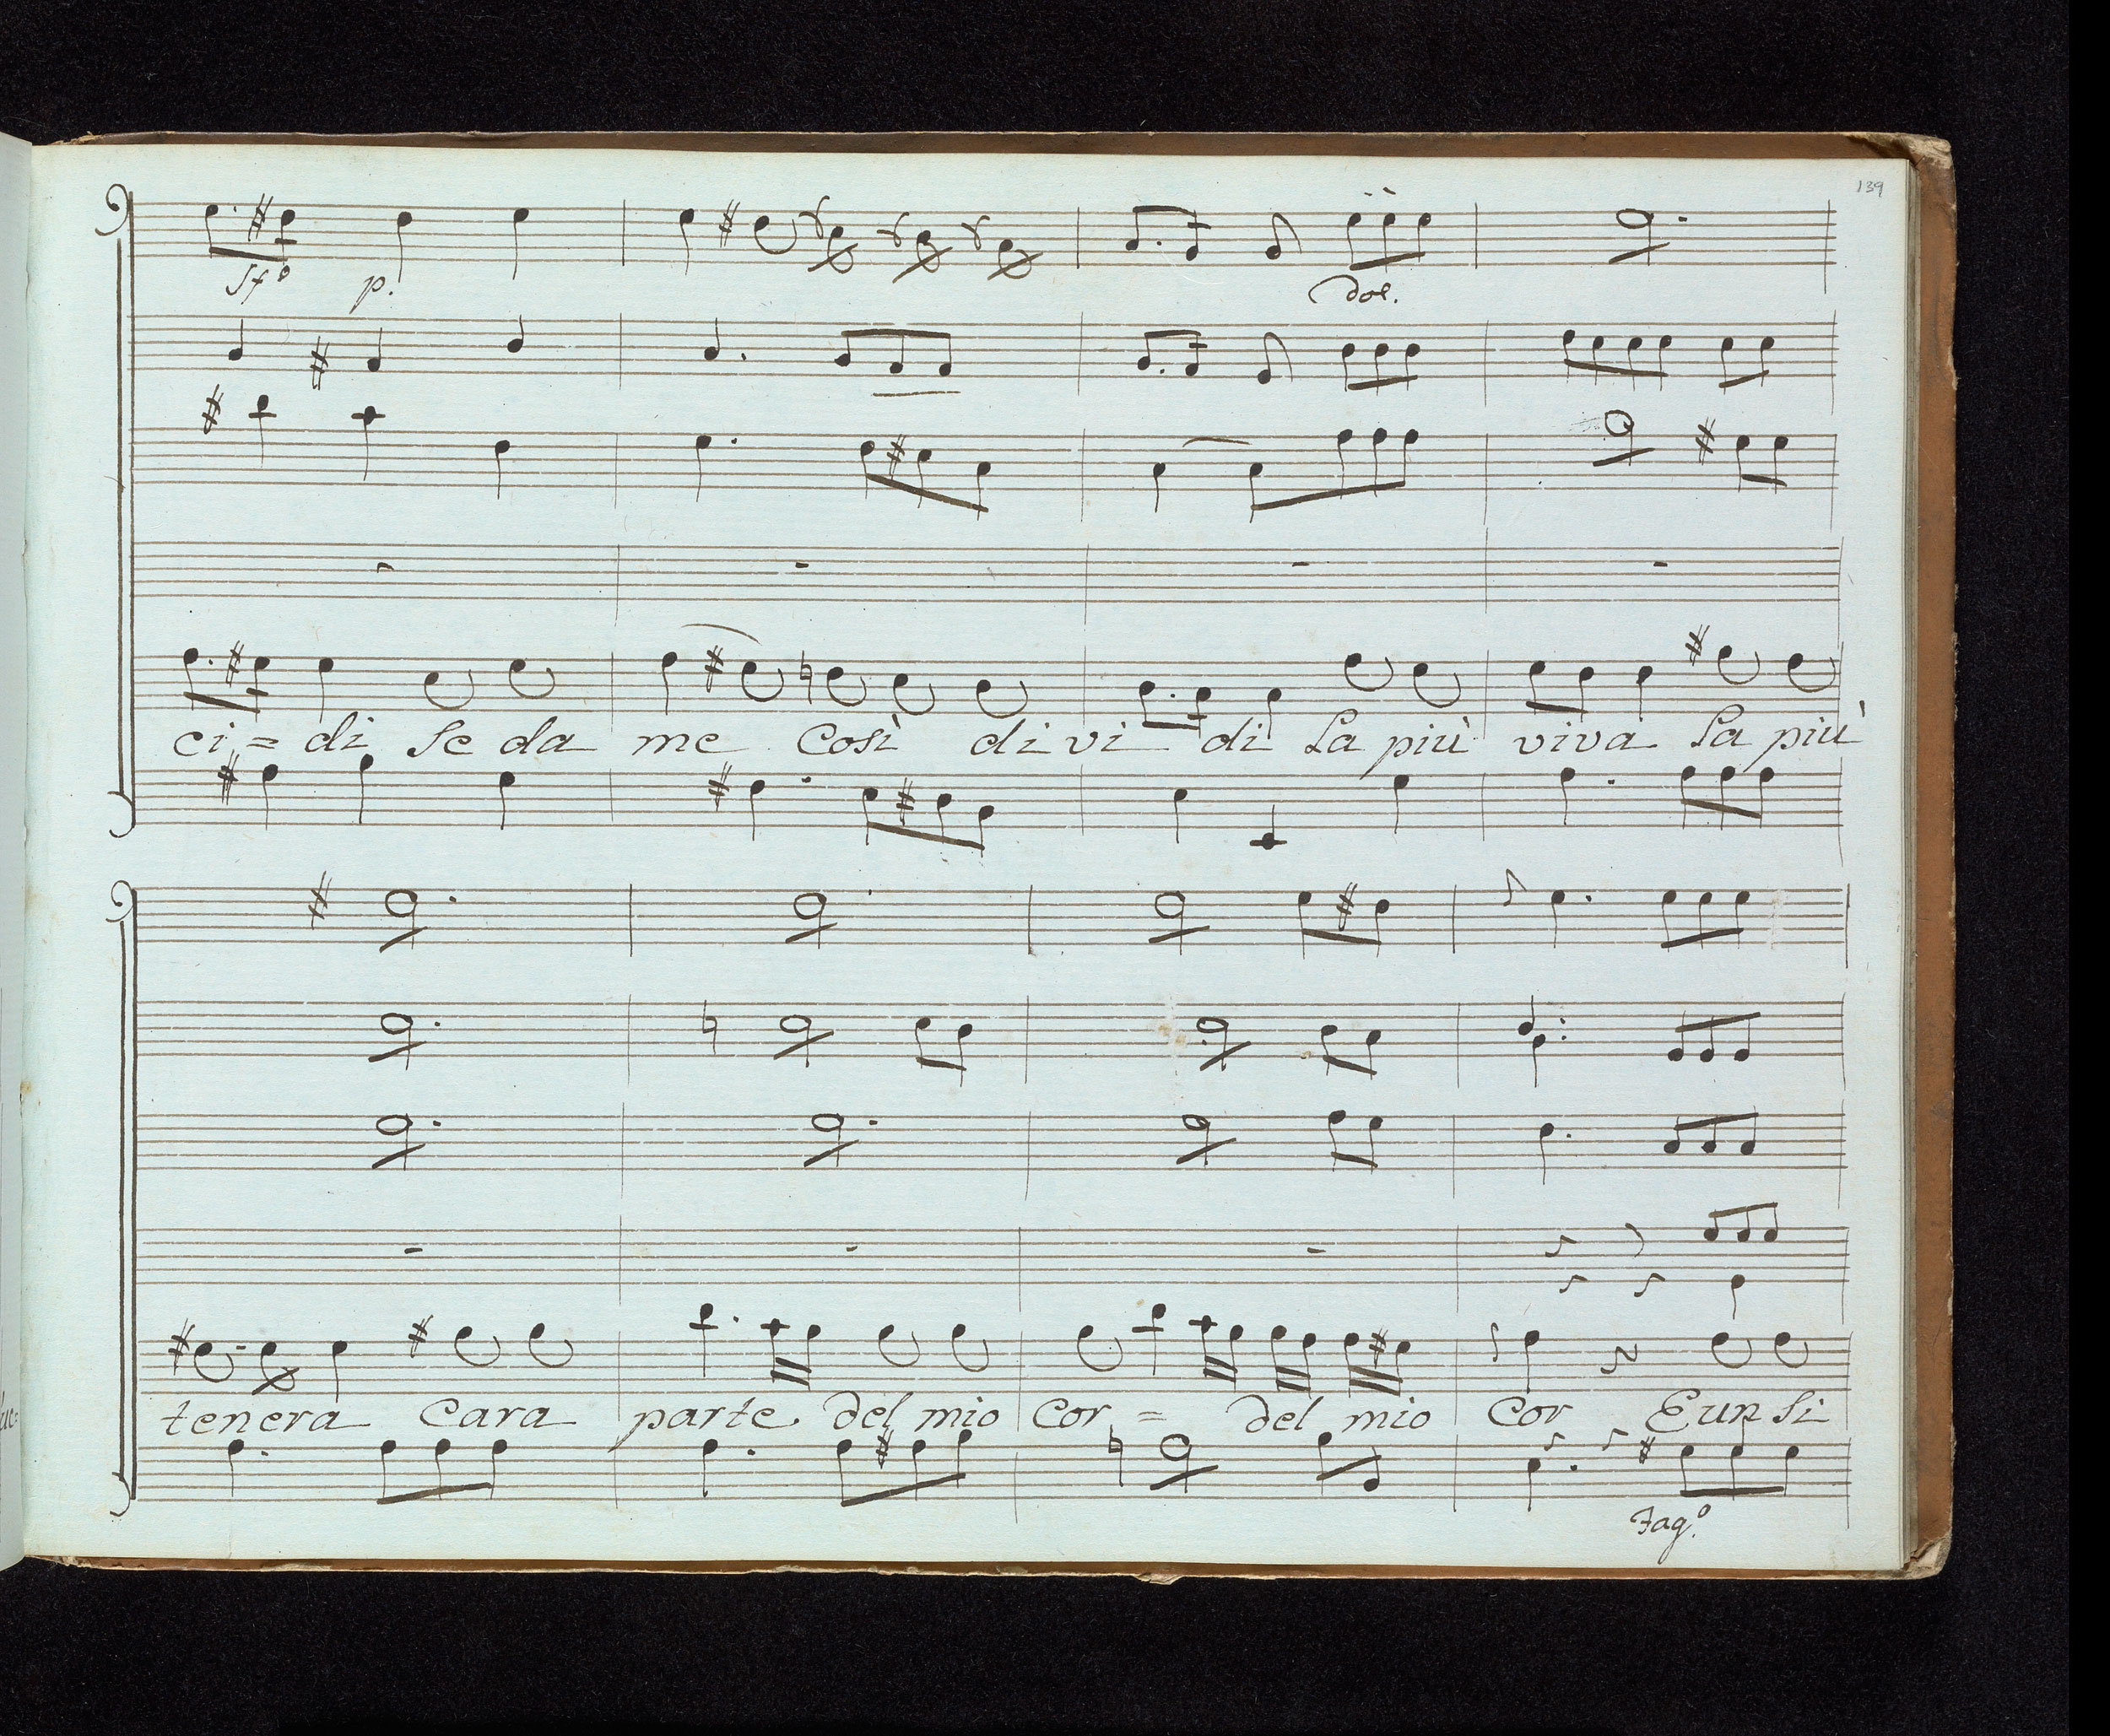 139
sf° p.
dol.
ci = di se da me Così divi di La più viva La più
tenera Cara parte del mio Cor = del mio Cor E un si
Fag.°